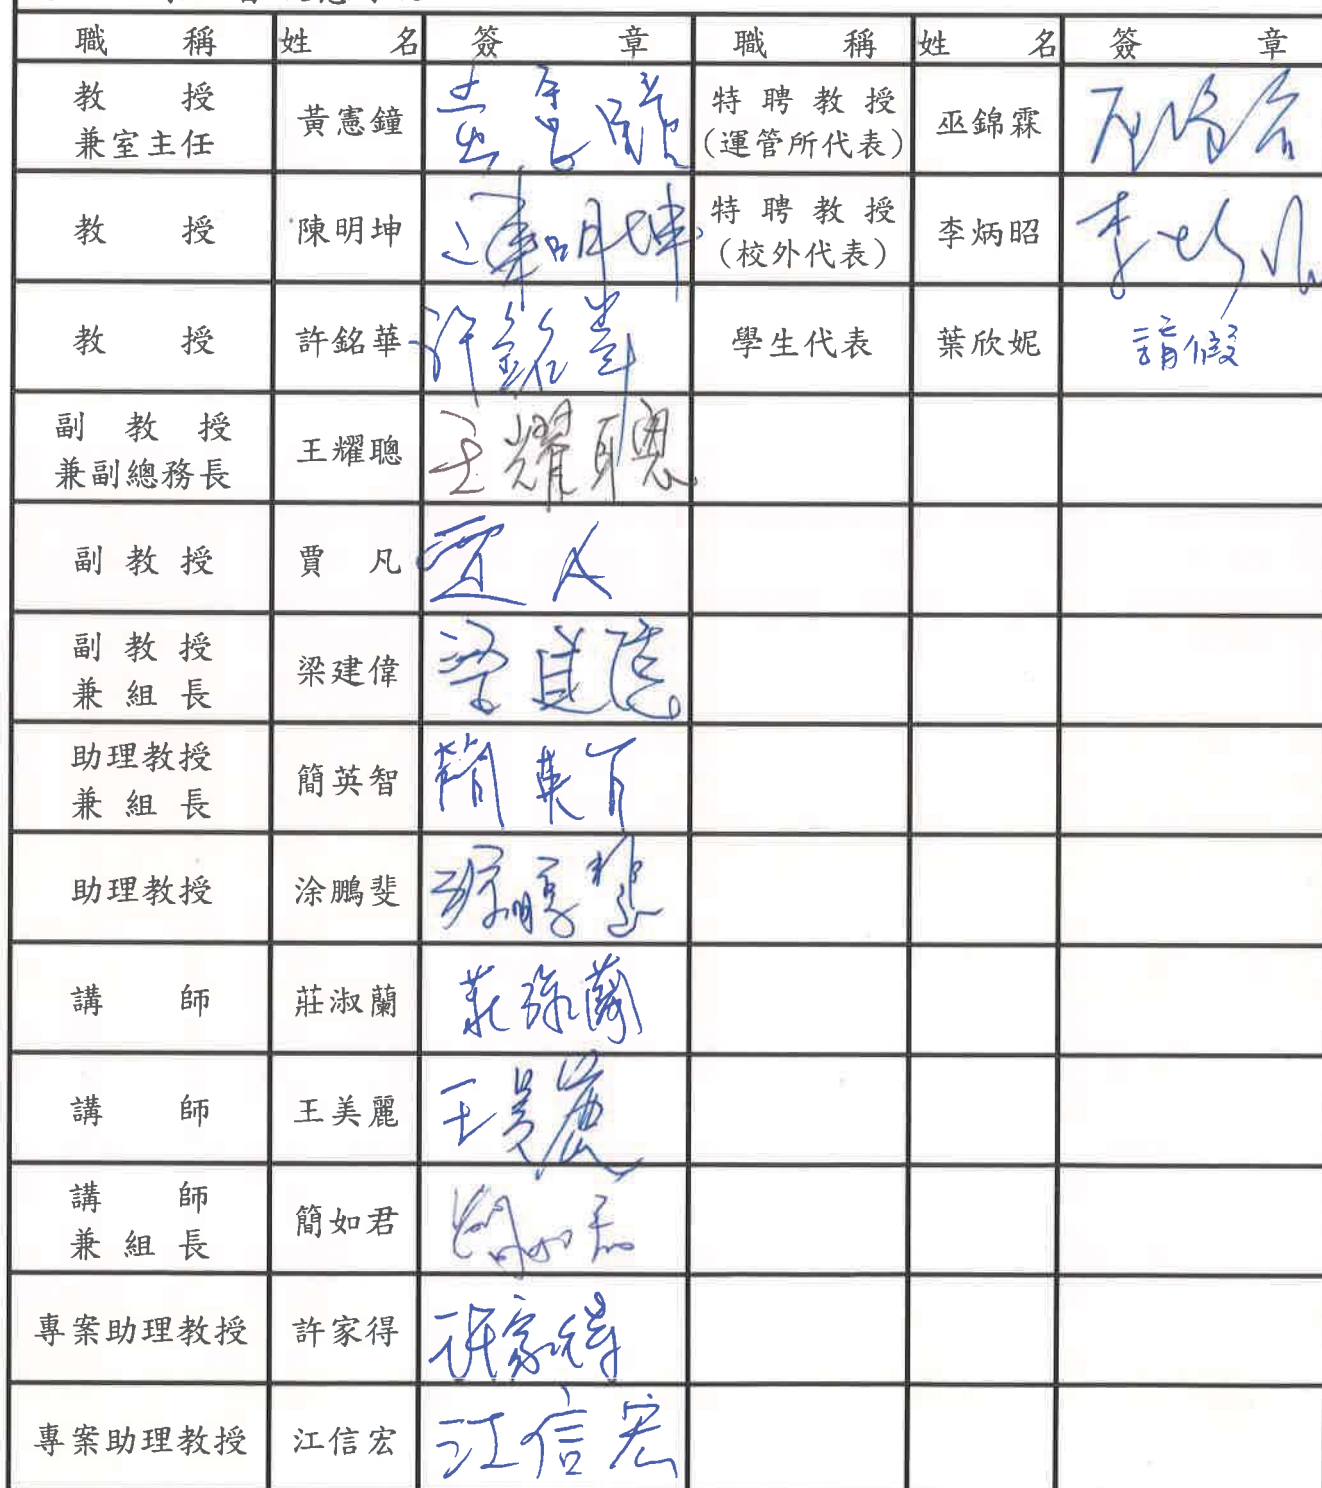 職稱 姓名 簽章 職稱 姓名 簽章
教授兼室主任 黃憲鐘 黃憲鐘 特聘教授(運管所代表) 巫錦霖
教授 陳明坤 陳明坤 特聘教授(校外代表) 李炳昭
教授 許銘華 許銘華 學生代表 葉欣妮 請假
副教授兼副總務長 王耀聰 王耀聰
副教授 賈凡 賈凡
副教授兼組長 梁建偉 梁建偉
助理教授兼組長 簡英智 簡英智
助理教授 涂鵬斐 涂鵬斐
講師 莊淑蘭 莊淑蘭
講師 王美麗 王美麗
講師兼組長 簡如君 簡如君
專案助理教授 許家得 許家得
專案助理教授 江信宏 江信宏